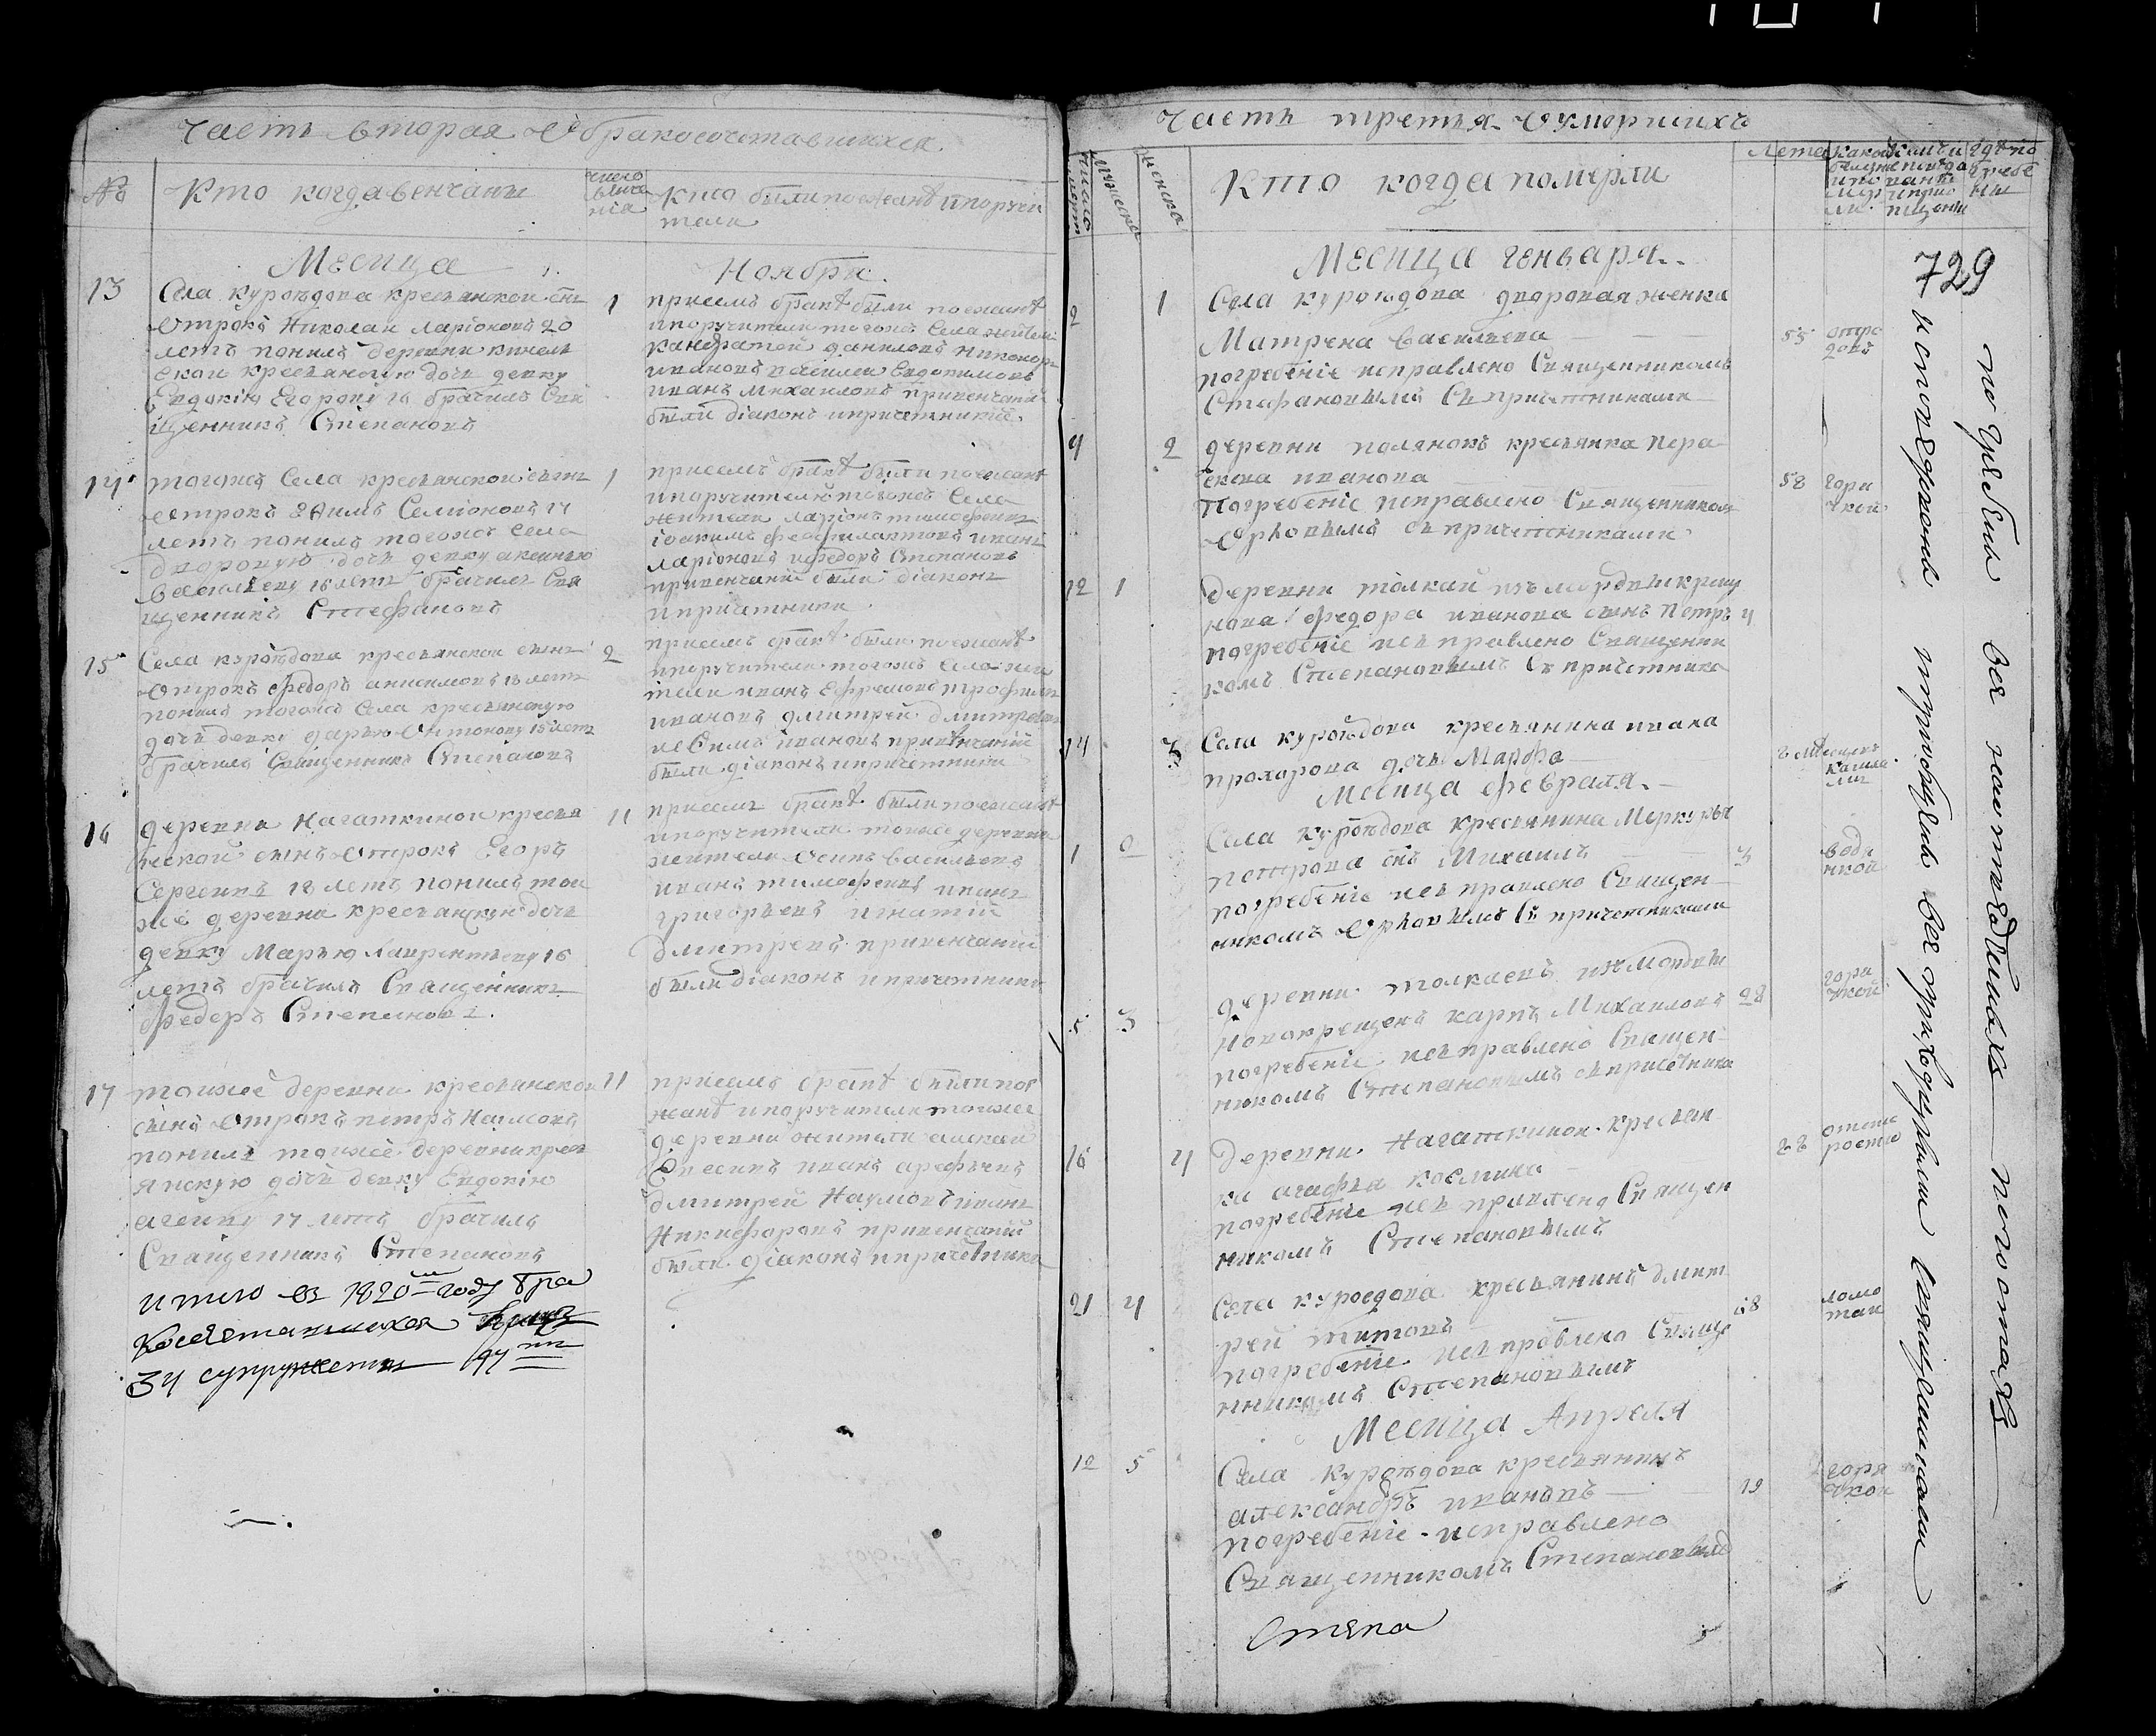 Часть вторая о бракосочетавшихся
№
Кто когда венчаны
число
Кто были поезжанѣ и поручи
тели
Месяца Ноября
13
Села куроѣдова крестьянской снъ
отрокъ Николай ларіоновъ 20
летъ понялъ деревни
ской крестьянскую дочь девку
Евдокію Брачилъ Свя
щенникъ Степановъ
1
присемъ бракѣ были поезжанѣ
и поручители тогожъ Села жители
даниловъ
ивановъ василеи Евдокимовъ
иванъ михаиловъ привенчаніи
были діаконъ и причетники.
14
тогожъ Села крестьянской сынъ
отрокъ Семіоновъ 17
летъ понялъ тогожъ Села
дворовую дочь девку аксинью
васильеву 16 летъ брачилъ Свя
щенникъ Стефановъ
1
присемъ бракѣ были поезжанѣ
и поручители тогожъ Села
жители ларіонъ тимофеевъ
іоакимъ феофилактовъ иванъ
ларіоновъ и федоръ Степановъ
привенчаніи были діаконъ
и причетники.
15
Села куроѣдова крестьянской сынъ
отрокъ федоръ анисимовъ 18 летъ
понялъ тогожъ Села крестьянскую
дочь девку дарью Антонову 18 летъ
брачилъ Священникъ Степановъ
2
присемъ бракѣ были поезжанѣ
и поручители тогожъ Села жи
тели иванъ Ефремовъ трофимъ
ивановъ дмитрей дмитреевъ
ивановъ привѣнчаніи
были діаконъ и причетники
16
деревни Нагаткиной крестья
нской сынъ отрокъ Егоръ
Сергеевъ 18 летъ понялъ тои
же деревни крестьянскую дочь
девку Марью лаврентьеву 16
летъ брачилъ Священникъ
федоръ Степановъ.
11
присемъ бракѣ были поезжанѣ
и поручители тоижъ деревни
жители осипъ васильевъ
иванъ тимофеевъ иванъ
григорьевъ игнатій
дмитреевъ привенчаніи
были діаконъ и причетники
17
тоижеѣ деревни крестьянской
сынъ отрокъ петръ Наумовъ
понялъ тоижеѣ деревни крест
янскую дочь девку Евдокію
агееву 17 летъ брачилъ
Священникъ Степановъ
11
присемъ бракѣ были пое
жанѣ и поручители тоижеѣ
деревни жители алексей
иванъ арефьевъ
дмитрей Наумовъ иванъ
Никифоровъ привенчаніи
были діаконъ и причетники
итого въ 1820мъ году бра
косочетавшихся
34 супружествъ 17ть
Часть третья о умершихъ
число
мужеска
женска
Кто когда померли
Лета
Какою
болезнію
померли.
Кемъ и
Где по
гребе
ны
729
Месяца генваря
2
1
Села куроѣдова дворовая женка
Матрена васильева
55
погребеніе исправлено Священникомъ
Стефановымъ Съ причетниками
4
2
деревни поляновъ крестьянка пера
скева иванова
58 горя
чкой
погребеніе исправлено Священником
Орловымъ съ причетниками
12
1
деревни толкай изъ мордвы крещ
нова федора иванова сынъ Петръ 4
погребеніе исправлено Священни
комъ Степановымъ Съ причетника
14
3
Села куроѣдова крестьянина ивана
прохорова дочь Марфа
месяцъ
кашле
мъ
Месяца февраля
1
2
Села куроѣдова крестьянина Меркурья
петрова снъ Михаилъ
3
водя
нкой
погребеніе исправлено Священ
никомъ Орловымъ Съ причетниками
5
3
деревни толкаевъ изъ Мордвы
новокрещенъ карпъ Михаиловъ 28
горя
чкой
погребеніе исправлено Священ
никомъ Степановымъ съ причетника
16
4
деревни Нагаткиной крестьян
ка агафья космина
88
отъста
рости
погребеніе исправлено Священ
никомъ Степановымъ
21
4
Села куроедова крестьянинъ дмит
рей титовъ
68
ломо
тая
погребеніе исправлено Свяще
нникомъ Степановымъ
Месяца Апреля
12
5
Села Куроѣдова крестьянинъ
александръ ивановъ
19
горя
чкой
погребеніе исправлено
Священникомъ Степановымъ
Степа
исповѣдованы и пріобщены все священниками
погребены все на отведенныхъ погостахъ